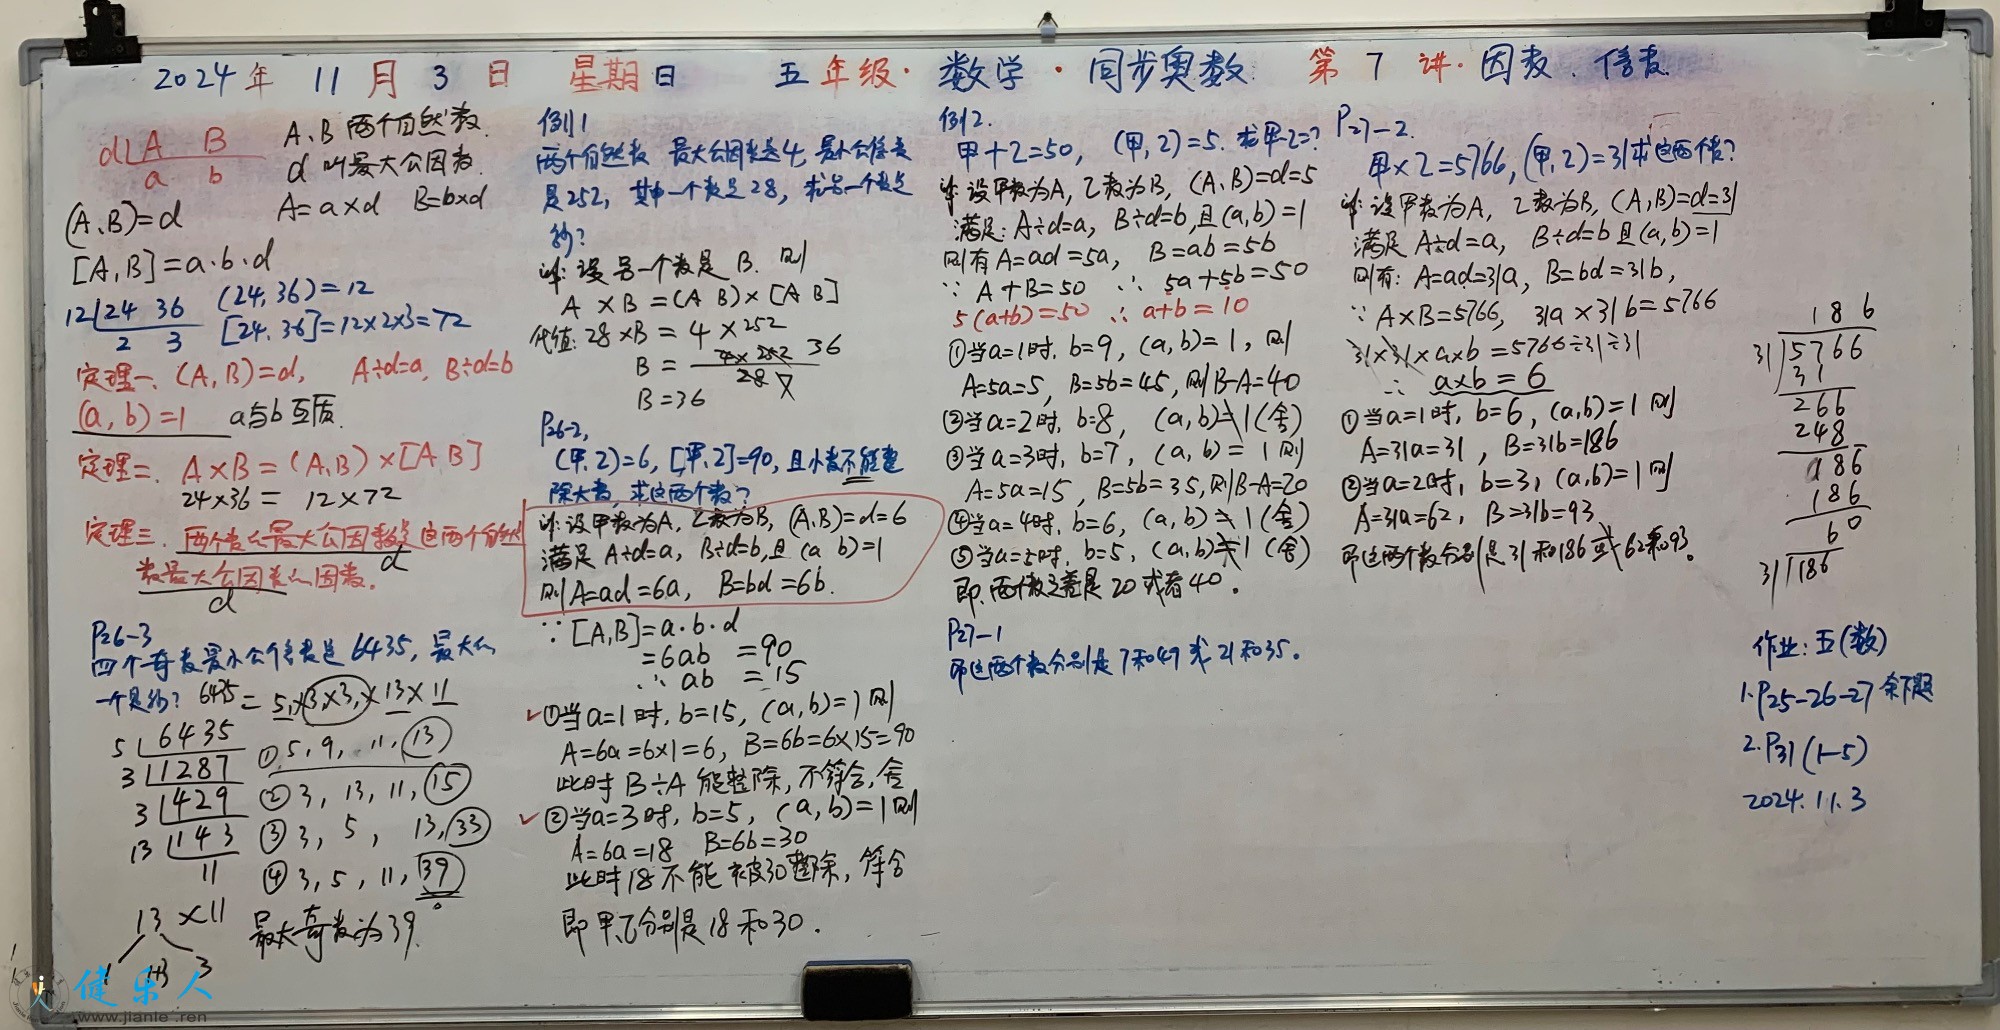 2024年 11月 3日 星期日 五年级·数学·同步奥数 第7讲·因数、倍数
d A B
a b
A、B两个自然数.
d 叫最大公因数.
A=a×d B=b×d
(A、B)=d
[A,B]=a·b·d
12 24 36 (24,36)=12
2 3 [24,36]=12×2×3=72
定理一、(A,B)=d, A÷d=a, B÷d=b
(a,b)=1 a与b互质.
定理二、A×B=(A,B)×[A,B]
24×36= 12×72
定理三、两个数的最大公因数是这两个自然
数最大公因数的因数.
d
d
P26-3
四个奇数最小公倍数是6435,最大的
一个是多少? 6435=5×3×3×13×11
5 6435
3 1287
3 429
13 143
11
①5,9,11,13
②3,13,11,15
③3,5,13,33
④3,5,11,39
13×11
1 13 3
最大奇数为39.
例1
两个自然数 最大公因数是4,最小公倍数
是252,其中一个数是28,求另一个数是
多少?
解:设另一个数是B.则
A×B=(A B)×[A B]
代值:28×B=4×252
B= 4×252 36
28 7
B=36
P26-2,
(甲,乙)=6,[甲,乙]=90,且小数不能整
除大数,求这两个数?
解:设甲数为A,乙数为B,(A,B)=d=6
满足A÷d=a, B÷d=b,且(a b)=1
则A=ad=6a, B=bd=6b.
∵[A,B]=a·b·d
=6ab =90
∴ ab =15
✓①当a=1时,b=15,(a,b)=1则
A=6a=6×1=6, B=6b=6×15=90
此时B÷A能整除,不符合,舍
✓②当a=3时,b=5,(a,b)=1则
A=6a=18 B=6b=30
此时18不能被30整除,符合
即甲、乙分别是18和30.
例2.
甲+乙=50, (甲,乙)=5. 求甲-乙=?
解:设甲数为A,乙数为B,(A、B)=d=5
满足:A÷d=a, B÷d=b,且(a,b)=1
则有A=ad=5a, B=ab=5b
∵A+B=50 ∴5a+5b=50
5(a+b)=50 ∴a+b=10
①当a=1时,b=9,(a,b)=1,则
A=5a=5,B=5b=45,则B-A=40
②当a=2时,b=8, (a,b)≠1(舍)
③当a=3时,b=7, (a,b)=1则
A=5a=15,B=5b=35,则B-A=20
④当a=4时,b=6, (a,b)≠1(舍)
⑤当a=5时,b=5, (a,b)≠1(舍)
即,两个数之差是20或者40.
P27-1
即这两个数分别是7和49或21和35.
P27-2.
甲×乙=5766,(甲,乙)=31求这两个数?
解:设甲数为A,乙数为B,(A,B)=d=31
满足A÷d=a, B÷d=b且(a,b)=1
则有:A=ad=31a,B=bd=31b,
∵A×B=5766, 31a×31b=5766
31×31×a×b=5766÷31÷31
∴ a×b=6
①当a=1时,b=6,(a,b)=1则
A=31a=31,B=31b=186
②当a=2时,b=3,(a,b)=1则
A=31a=62, B=31b=93
即这两个数分别是31和186或62和93.
186
31 5766
31
266
248
186
186
0
6
31 186
作业:五(数)
1.P25-26-27余下题
2.P31(1-5)
2024.11.3
健乐人
www.jianle.ren